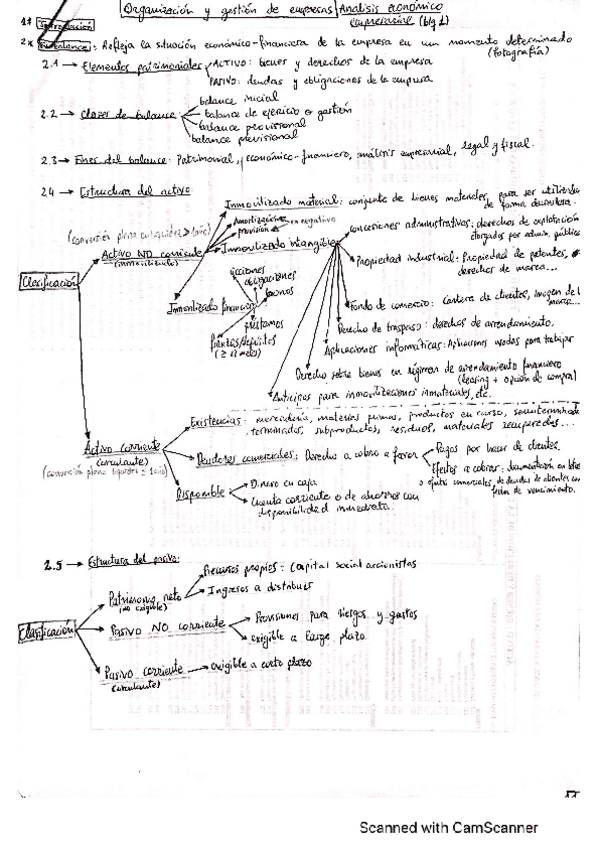 Organización y gestión de empresas / Análisis económico
empresarial (blq 1)
1* Introducción
2* El balance: Refleja la situación económico-financiera de la empresa en un momento determinado
(fotografía)
2.1 → Elementos patrimoniales
ACTIVO: bienes y derechos de la empresa
PASIVO: deudas y obligaciones de la empresa
2.2 → Clases de balance:
balance inicial
balance de ejercicio o gestión
balance provisional
balance previsional
2.3 → Fines del balance: Patrimonial, económico-financiero, análisis empresarial, legal y fiscal.
2.4 → Estructura del activo:
Clasificación
(conversión plena en liquidez > 1 año)
Activo NO corriente
(inmovilizado)
Inmovilizado material: conjunto de bienes materiales, para ser utilizados
de forma duradera.
Amortización
provisión
en negativo
Inmovilizado intangible
Concesiones administrativas: derechos de explotación
otorgados por admin. públicas
Propiedad industrial: Propiedad de patentes,
derechos de marca...
Fondo de comercio: Cartera de clientes, imagen de l
marca...
Derecho de traspaso: derechos de arrendamiento.
Aplicaciones informáticas: Aplicaciones usadas para trabajar
Derecho sobre bienes en régimen de arrendamiento financiero
(leasing + opción de compra)
Anticipos para inmovilizaciones inmateriales, etc.
Inmovilizado financiero
acciones
obligaciones
bonos
préstamos
Fianzas/depósitos
(≥ 12 meses)
Activo corriente
(circulante)
(conversión plena liquidez ≤ 1 año)
Existencias: mercadería, materias primas, productos en curso, semiterminados
terminados, subproductos, residuos, materiales recuperados...
Deudores comerciales: Derecho a cobro a favor
Pagos por hacer de clientes.
Efectos a cobrar: documentación en letras
o efectos comerciales, de deudas de clientes con
fecha de vencimiento.
Disponible
Dinero en caja
Cuenta corriente o de ahorros con
disponibilidad inmediata.
2.5 → Estructura del pasivo:
Clasificación
Patrimonio neto
(no exigible)
Recursos propios: Capital social accionistas
Ingresos a distribuir
Pasivo NO corriente
Provisiones para riesgos y gastos
exigible a largo plazo
Pasivo corriente
(circulante)
exigible a corto plazo
Scanned with CamScanner